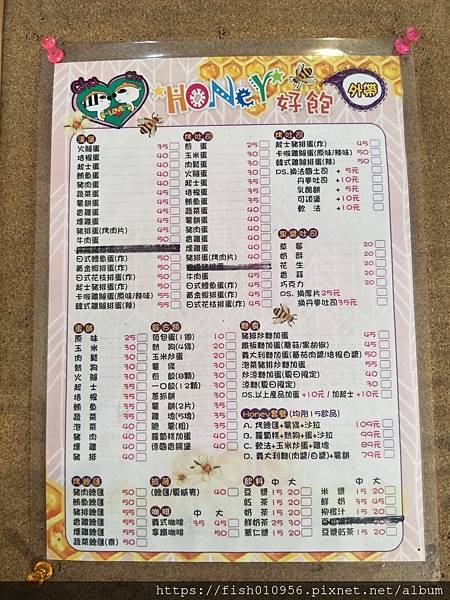 HONEY 好飽
外帶
LOVE
漢堡
火腿蛋 35
培根蛋 40
起士蛋 40
鮪魚蛋 40
豬肉蛋 40
蔬菜蛋 40
薯餅蛋 40
香雞蛋 40
燻雞蛋 40
豬排蛋(烤肉片) 45
牛肉蛋 50
日式鱈魚蛋(炸) 50
黃金蝦排蛋(炸) 50
日式花枝排蛋(炸) 50
起士豬排蛋(炸) 50
卡啦雞腿蛋(原味/辣味) 55
韓式雞腿蛋(辣) 55
烤吐司
煎蛋 25
玉米蛋 30
肉鬆蛋 30
火腿蛋 30
起士蛋 35
培根蛋 35
鮪魚蛋 35
蔬菜蛋 35
薯餅蛋 35
豬肉蛋 40
香雞蛋 40
燻雞蛋 40
豬排蛋(烤肉片) 40
牛肉蛋 45
日式鱈魚蛋(炸) 45
黃金蝦排蛋(炸) 45
日式花枝排蛋(炸) 45
烤吐司
起士豬排蛋(炸) 45
卡啦雞腿蛋(原味/辣味) 50
韓式雞腿蛋(辣) 50
PS.換法國土司 +5元
丹麥吐司 +10元
乳酪餅 +5元
可頌堡 +10元
軟法 +10元
果醬吐司
草莓 20
奶酥 20
花生 20
香蒜 20
巧克力 20
PS. 換厚片25元
換丹麥吐司35元
蛋餅
原味 25
玉米 30
肉鬆 30
熱狗 30
火腿 30
起士 35
培根 35
鮪魚 35
蔬菜 35
泡菜 40
豬肉 40
燻雞 40
豬排 40
綜合點
荷包蛋(1個) 10
熱狗(4條) 20
玉米炒蛋 20
薯條 30
煎餃(8顆) 30
一口餃(12顆) 30
蔥抓餅 30
薯餅(2片) 30
雞塊(5塊) 35
脆薯(粗) 35
蘿蔔糕加蛋 35
德國香腸堡 45
麵食
豬排炒麵加蛋 45
鐵板麵加蛋(蘑菇/黑胡椒) 45
義大利麵加蛋(蕃茄肉醬/培根白醬) 50
泡菜豬排炒麵加蛋 55
炒涼麵加蛋(夏日限定) 40
涼麵(夏日限定) 30
PS.以上產品加蛋+10元/加起士+10元
Honey套餐(均附15飲品)
A. 烤燒匯+薯條+沙拉 109元
B. 蘿蔔糕+熱狗+蛋+沙拉 99元
C. 軟法+玉米炒蛋+雞塊 89元
D. 義大利麵(肉醬/白醬)+薯餅 79元
豬肉燒匯 50
鮪魚燒匯 50
香雞燒匯 50
燻雞燒匯 50
蔬菜燒匯(素) 50
咖啡 中 大
義式咖啡 35 45
拿鐵咖啡 50
飲料 中 大
豆漿 15 20
紅茶 15 20
奶茶 15 20
鮮奶茶 25 30
薏仁漿 15 20
中 大
米漿 15 20
鮮奶 30
柳橙汁 15 20
豆漿紅茶 15 20
https://fish010956.pixnet.net/album